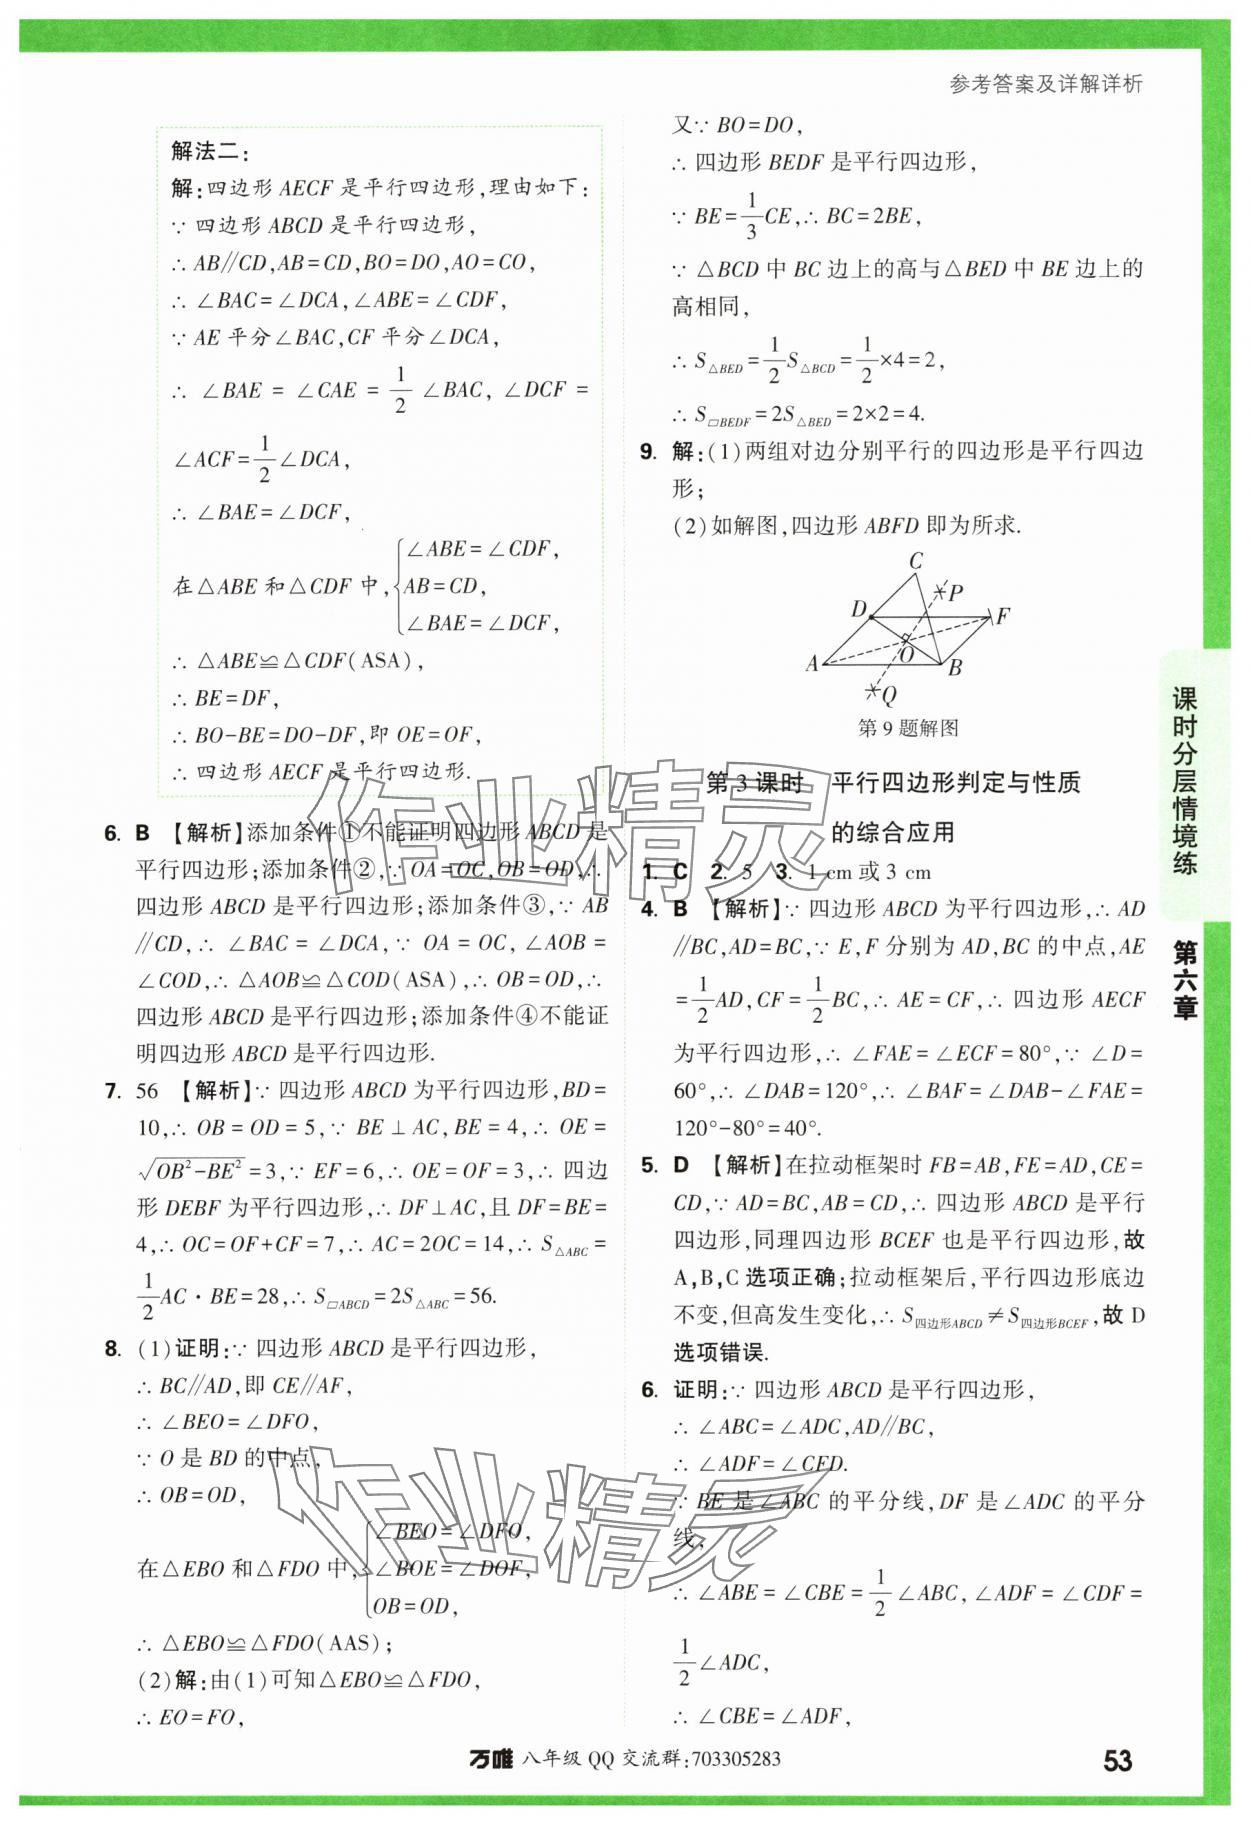 参考答案及详解详析
解法二:
解:四边形AECF是平行四边形,理由如下:
∵四边形ABCD是平行四边形,
∴AB∥CD,AB=CD,BO=DO,AO=CO,
∴∠BAC=∠DCA,∠ABE=∠CDF,
∵AE平分∠BAC,CF平分∠DCA,
∴∠BAE=∠CAE=1/2∠BAC,∠DCF=
∠ACF=1/2∠DCA,
∴∠BAE=∠DCF,
在△ABE和△CDF中,{∠ABE=∠CDF,
AB=CD,
∠BAE=∠DCF,
∴△ABE≌△CDF(ASA),
∴BE=DF,
∴BO-BE=DO-DF,即OE=OF,
∴四边形AECF是平行四边形.
6. B 【解析】添加条件①不能证明四边形ABCD是
平行四边形;添加条件②,∵OA=OC,OB=OD,∴
四边形ABCD是平行四边形;添加条件③,∵AB
∥CD,∴∠BAC=∠DCA,∵OA=OC,∠AOB=
∠COD,∴△AOB≌△COD(ASA),∴OB=OD,∴
四边形ABCD是平行四边形;添加条件④不能证
明四边形ABCD是平行四边形.
7. 56 【解析】∵四边形ABCD为平行四边形,BD=
10,∴OB=OD=5,∵BE⊥AC,BE=4,∴OE=
√(OB²-BE²)=3,∵EF=6,∴OE=OF=3,∴四边
形DEBF为平行四边形,∴DF⊥AC,且DF=BE=
4,∴OC=OF+CF=7,∴AC=2OC=14,∴S△ABC=
1/2AC·BE=28,∴S▱ABCD=2S△ABC=56.
8. (1)证明:∵四边形ABCD是平行四边形,
∴BC∥AD,即CE∥AF,
∴∠BEO=∠DFO,
∵O是BD的中点,
∴OB=OD,
在△EBO和△FDO中,{∠BEO=∠DFO,
∠BOE=∠DOF,
OB=OD,
∴△EBO≌△FDO(AAS);
(2)解:由(1)可知△EBO≌△FDO,
∴EO=FO,
又∵BO=DO,
∴四边形BEDF是平行四边形,
∵BE=1/3CE,∴BC=2BE,
∵△BCD中BC边上的高与△BED中BE边上的
高相同,
∴S△BED=1/2S△BCD=1/2×4=2,
∴S▱BEDF=2S△BED=2×2=4.
9. 解:(1)两组对边分别平行的四边形是平行四边
形;
(2)如解图,四边形ABFD即为所求.
C
P
D
F
O
A
B
Q
第9题解图
第3课时 平行四边形判定与性质
的综合应用
1. C 2. 5 3. 1 cm或3 cm
4. B 【解析】∵四边形ABCD为平行四边形,∴AD
∥BC,AD=BC,∵E,F分别为AD,BC的中点,AE
=1/2AD,CF=1/2BC,∴AE=CF,∴四边形AECF
为平行四边形,∴∠FAE=∠ECF=80°,∵∠D=
60°,∴∠DAB=120°,∴∠BAF=∠DAB-∠FAE=
120°-80°=40°.
5. D 【解析】在拉动框架时FB=AB,FE=AD,CE=
CD,∵AD=BC,AB=CD,∴四边形ABCD是平行
四边形,同理四边形BCEF也是平行四边形,故
A,B,C选项正确;拉动框架后,平行四边形底边
不变,但高发生变化,∴S四边形ABCD≠S四边形BCEF,故D
选项错误.
6. 证明:∵四边形ABCD是平行四边形,
∴∠ABC=∠ADC,AD∥BC,
∴∠ADF=∠CFD.
∵BE是∠ABC的平分线,DF是∠ADC的平分
线,
∴∠ABE=∠CBE=1/2∠ABC,∠ADF=∠CDF=
1/2∠ADC,
∴∠CBE=∠ADF,
课时分层情境练
第六章
作业精灵
作业精灵
万唯 八年级QQ交流群:703305283
53